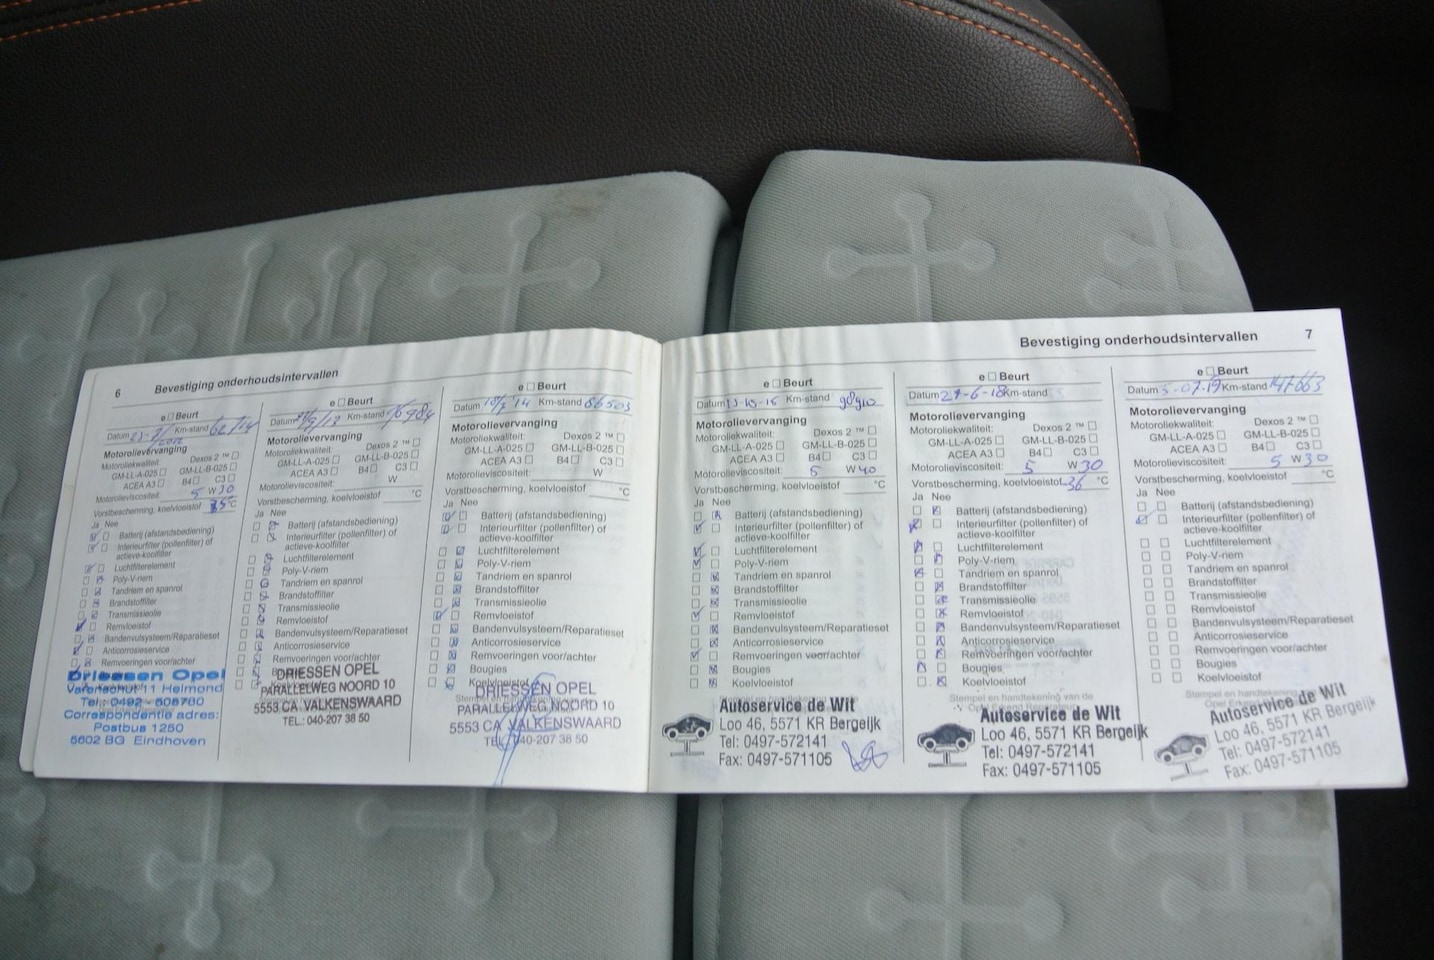 6 Bevestiging onderhoudsintervallen
e □ Beurt
Datum 23-7/2012 Km-stand
Motorolievervanging
Motoroliekwaliteit: Dexos 2 ™ □
GM-LL-A-025 □ GM-LL-B-025 □
ACEA A3 □ B4 □ C3 □
Motorolieviscositeit: 5 W 30
Vorstbescherming, koelvloeistof °C
Ja Nee
Batterij (afstandsbediening)
Interieurfilter (pollenfilter) of
actieve-koolfilter
Luchtfilterelement
Poly-V-riem
Tandriem en spanrol
Brandstoffilter
Transmissieolie
Remvloeistof
Bandenvulsysteem/Reparatieset
Anticorrosieservice
Remvoeringen voor/achter
Driessen Opel
Varenschut 11 Helmond
Tel.: 0492 - 508780
Correspondentie adres:
Postbus 1250
5602 BG Eindhoven
e □ Beurt
Datum Km-stand 76984
Motorolievervanging
Motoroliekwaliteit: Dexos 2 ™ □
GM-LL-A-025 □ GM-LL-B-025 □
ACEA A3 □ B4 □ C3 □
Motorolieviscositeit: W
Vorstbescherming, koelvloeistof °C
Ja Nee
Batterij (afstandsbediening)
Interieurfilter (pollenfilter) of
actieve-koolfilter
Luchtfilterelement
Poly-V-riem
Tandriem en spanrol
Brandstoffilter
Transmissieolie
Remvloeistof
Bandenvulsysteem/Reparatieset
Anticorrosieservice
Remvoeringen voor/achter
DRIESSEN OPEL
PARALLELWEG NOORD 10
5553 CA VALKENSWAARD
TEL.: 040-207 38 50
e □ Beurt
Datum Km-stand 86503
Motorolievervanging
Motoroliekwaliteit: Dexos 2 ™ □
GM-LL-A-025 □ GM-LL-B-025 □
ACEA A3 □ B4 □ C3 □
Motorolieviscositeit: W
Vorstbescherming, koelvloeistof °C
Ja Nee
Batterij (afstandsbediening)
Interieurfilter (pollenfilter) of
actieve-koolfilter
Luchtfilterelement
Poly-V-riem
Tandriem en spanrol
Brandstoffilter
Transmissieolie
Remvloeistof
Bandenvulsysteem/Reparatieset
Anticorrosieservice
Remvoeringen voor/achter
Bougies
Koelvloeistof
DRIESSEN OPEL
PARALLELWEG NOORD 10
5553 CA VALKENSWAARD
TEL.: 040-207 38 50
Bevestiging onderhoudsintervallen 7
e □ Beurt
Datum Km-stand 98910
Motorolievervanging
Motoroliekwaliteit: Dexos 2 ™ □
GM-LL-A-025 □ GM-LL-B-025 □
ACEA A3 □ B4 □ C3 □
Motorolieviscositeit: 5 W 40
Vorstbescherming, koelvloeistof °C
Ja Nee
Batterij (afstandsbediening)
Interieurfilter (pollenfilter) of
actieve-koolfilter
Luchtfilterelement
Poly-V-riem
Tandriem en spanrol
Brandstoffilter
Transmissieolie
Remvloeistof
Bandenvulsysteem/Reparatieset
Anticorrosieservice
Remvoeringen voor/achter
Bougies
Koelvloeistof
Autoservice de Wit
Loo 46, 5571 KR Bergeijk
Tel: 0497-572141
Fax: 0497-571105
e □ Beurt
Datum 27-6-18 Km-stand
Motorolievervanging
Motoroliekwaliteit: Dexos 2 ™ □
GM-LL-A-025 □ GM-LL-B-025 □
ACEA A3 □ B4 □ C3 □
Motorolieviscositeit: 5 W 30
Vorstbescherming, koelvloeistof -36 °C
Ja Nee
Batterij (afstandsbediening)
Interieurfilter (pollenfilter) of
actieve-koolfilter
Luchtfilterelement
Poly-V-riem
Tandriem en spanrol
Brandstoffilter
Transmissieolie
Remvloeistof
Bandenvulsysteem/Reparatieset
Anticorrosieservice
Remvoeringen voor/achter
Bougies
Koelvloeistof
Stempel en handtekening van de
Opel Erkend Reparateur
Autoservice de Wit
Loo 46, 5571 KR Bergeijk
Tel: 0497-572141
Fax: 0497-571105
e □ Beurt
Datum 5-07-19 Km-stand
Motorolievervanging
Motoroliekwaliteit: Dexos 2 ™ □
GM-LL-A-025 □ GM-LL-B-025 □
ACEA A3 □ B4 □ C3 □
Motorolieviscositeit: 5 W 30
Vorstbescherming, koelvloeistof °C
Ja Nee
Batterij (afstandsbediening)
Interieurfilter (pollenfilter) of
actieve-koolfilter
Luchtfilterelement
Poly-V-riem
Tandriem en spanrol
Brandstoffilter
Transmissieolie
Remvloeistof
Bandenvulsysteem/Reparatieset
Anticorrosieservice
Remvoeringen voor/achter
Bougies
Koelvloeistof
Stempel en handtekening
Autoservice de Wit
Loo 46, 5571 KR Bergeijk
Tel: 0497-572141
Fax: 0497-571105